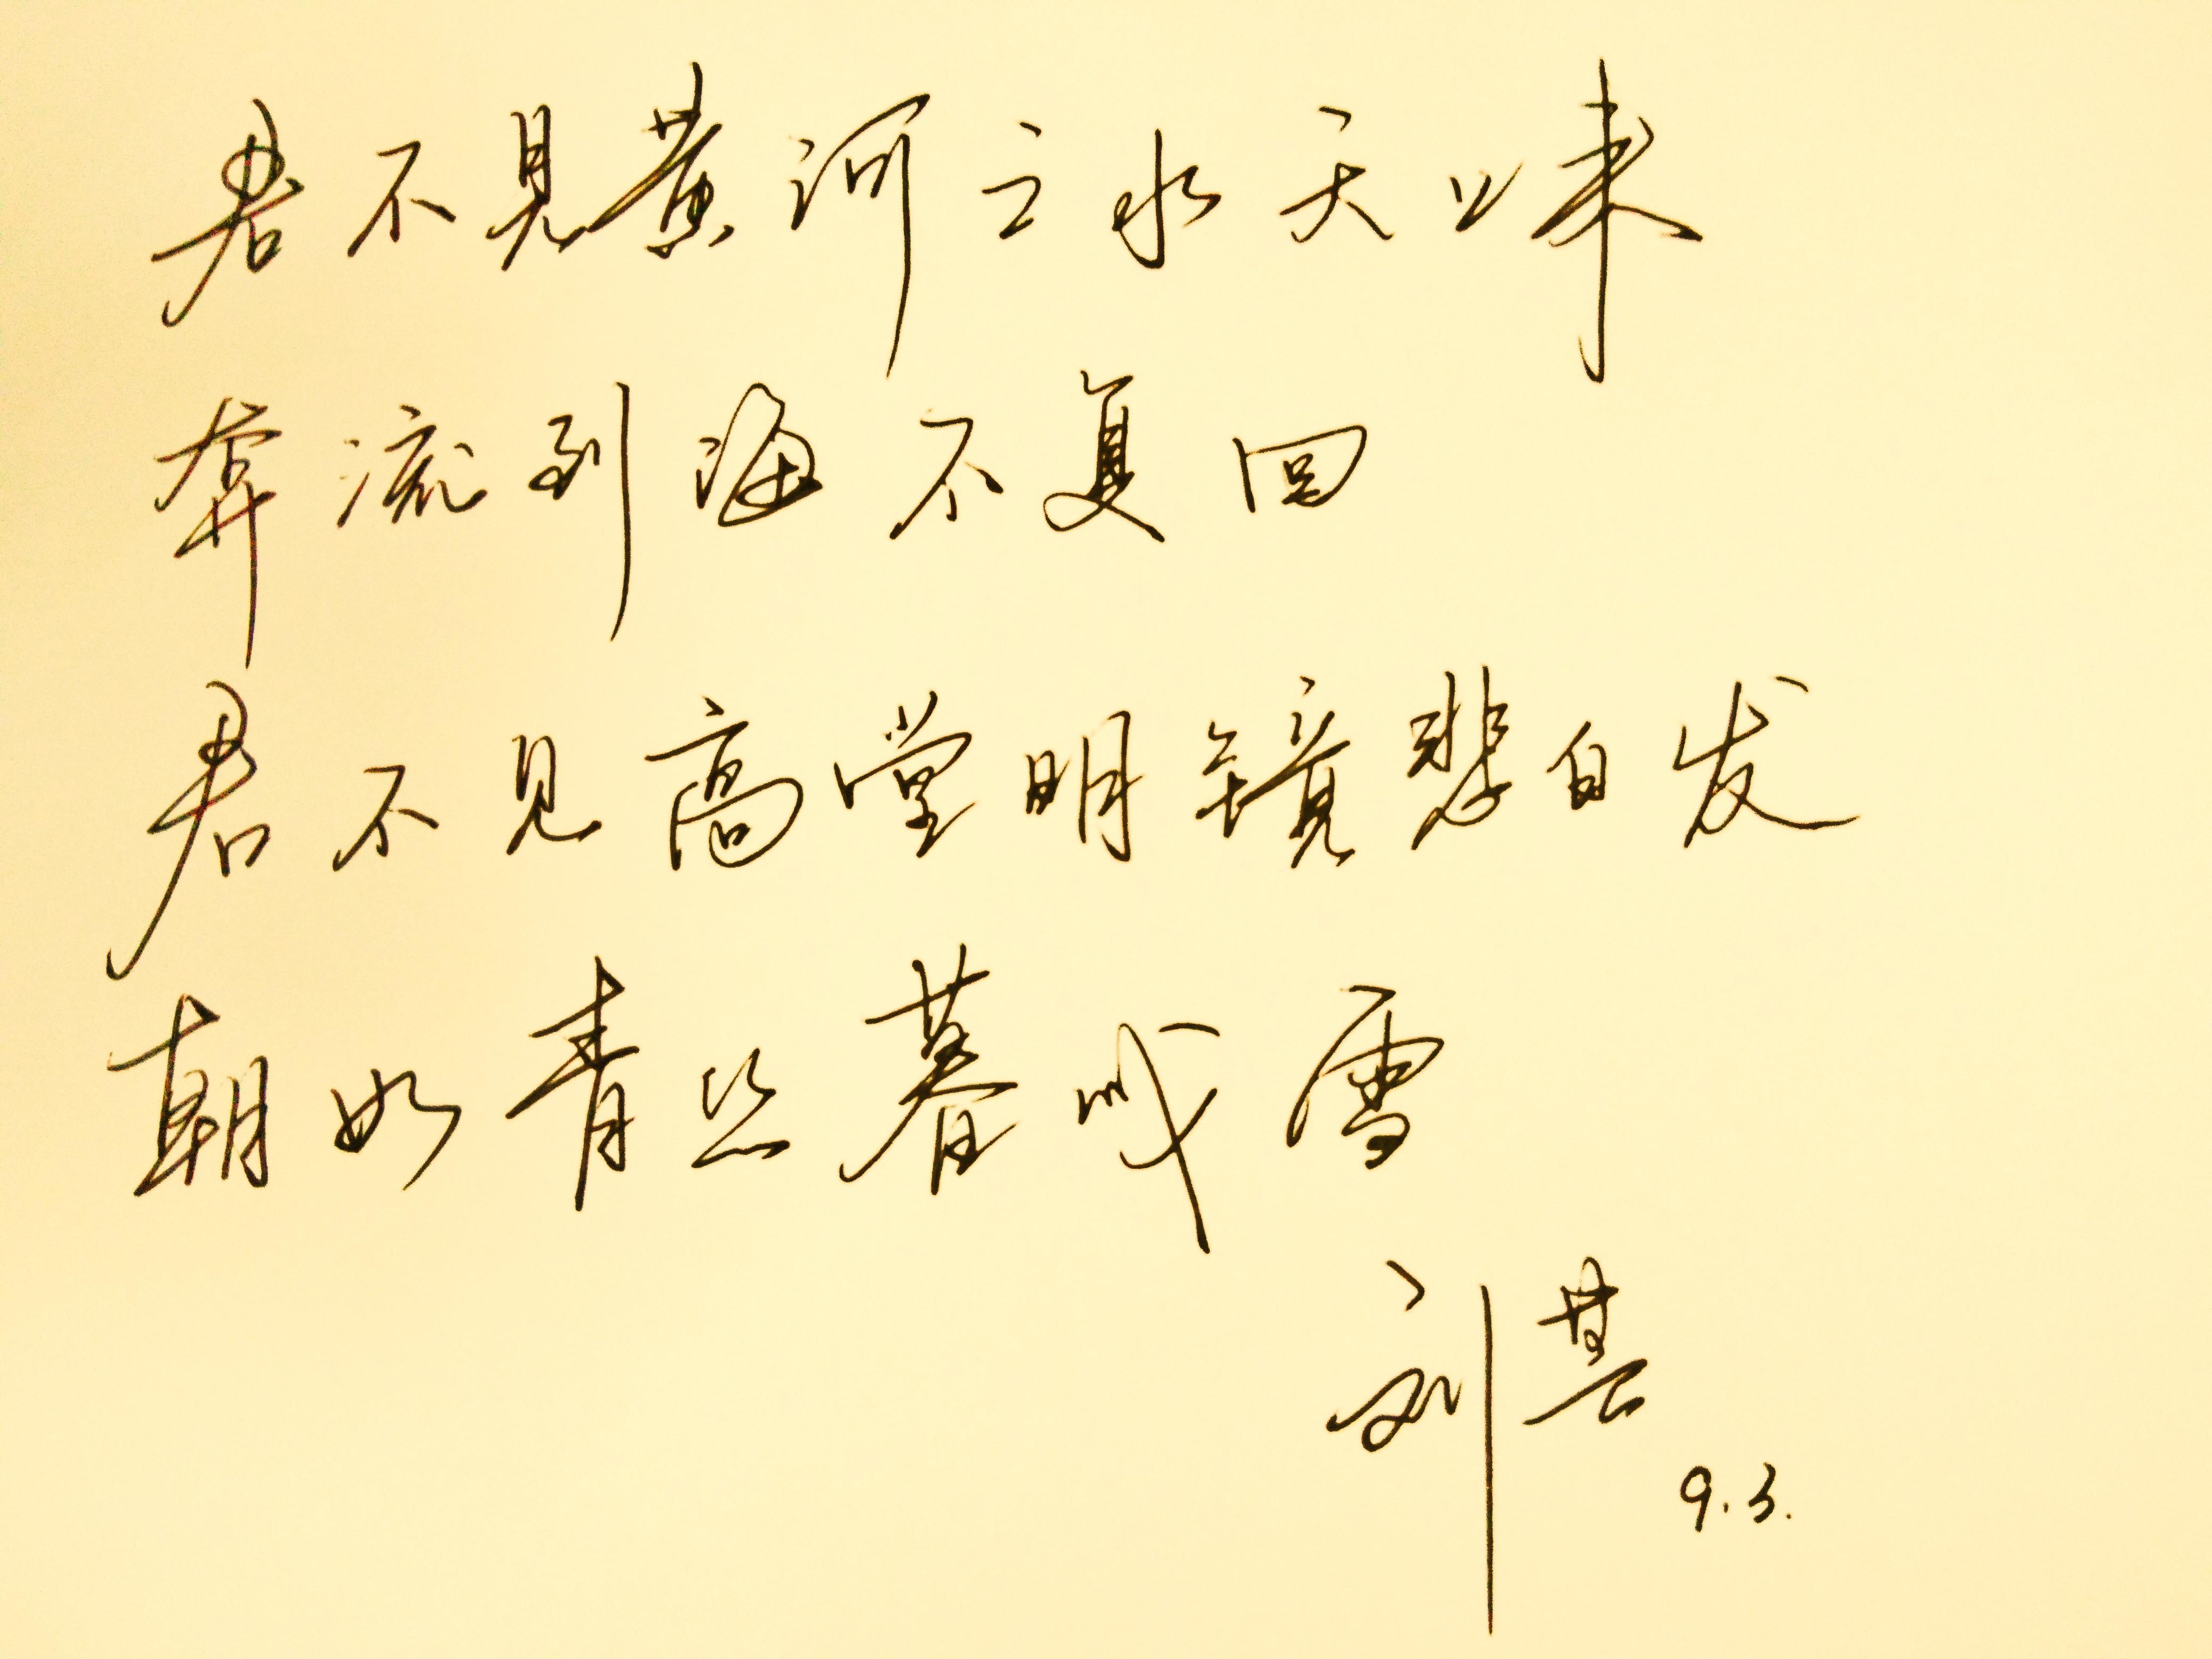 君不见黄河之水天上来
奔流到海不复回
君不见高堂明镜悲白发
朝如青丝暮成雪
刘芸
9.3.